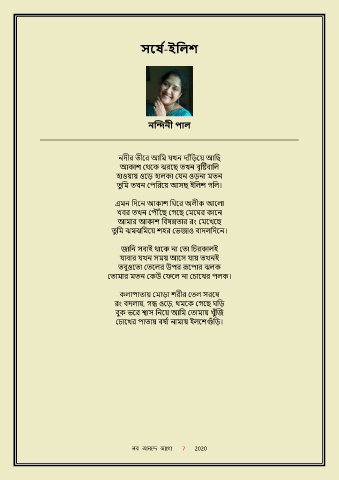 সর্ষে-ইলিশ
নন্দিনী পাল
নদীর তীরে আমি যখন দাঁড়িয়ে আছি
আকাশ থেকে ঝরছে তখন বৃষ্টিবালি
হাওয়ায় ওড়ে হালকা যেন ওড়না মতন
তুমি তখন পেরিয়ে আসছ ইলিশ গলি।
এমন দিনে আকাশ ঘিরে অলীক আলো
খবর তখন পৌঁছে গেছে মেঘের কানে
আমার আকাশ বিষন্নতার রং মেখেছে
তুমি ঝমঝমিয়ে শহর ভেজাও বাদলদিনে।
জানি সবাই থাকে না তো চিরকালই
যাবার যখন সময় আসে যায় তখনই
তবুওতো তেলের উপর রূপোর ঝলক
তোমার মতন কেউ ফেলে না চোখের পলক।
কলাপাতায় মোড়া শরীর তেল সরষে
রং বদলায়, গন্ধ ওড়ে, থমকে গেছে ঘড়ি
বুক ভরে শ্বাস নিয়ে আমি তোমায় খুঁজি
চোখের পাতায় বর্ষা নামায় ইলশেগুঁড়ি।
নব আনন্দে জাগো 7 2020